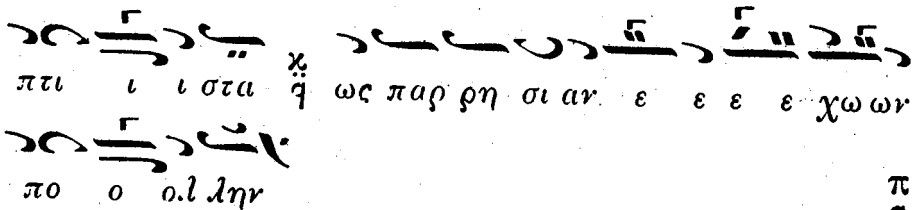 πτι ι ι στα ως παρ ρη σι αν ε ε ε ε χω ων
πο ο ο.ι λην π